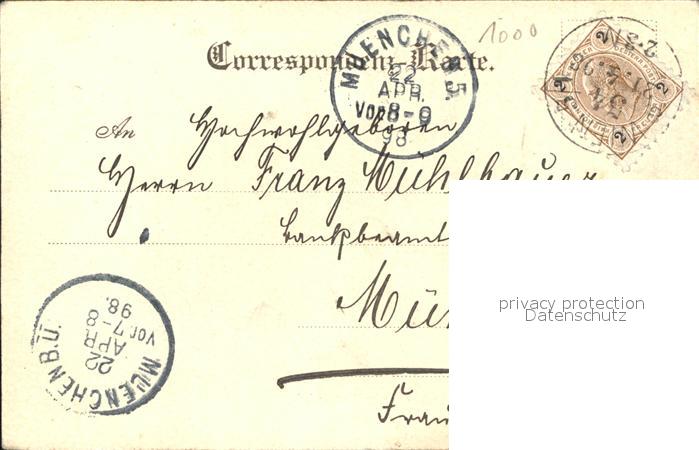 1000
Correspondenz-Karte.
MUENCHEN 5.
22
APR.
VOR 8-9
98
2 2 2 2
An Hochwohlgeboren
Herrn Franz Mühlbauer
Bankbeamt
Mün
Frau
MUENCHEN B.Ü.
22
APR
VOR 7-8
98.
privacy protection
Datenschutz